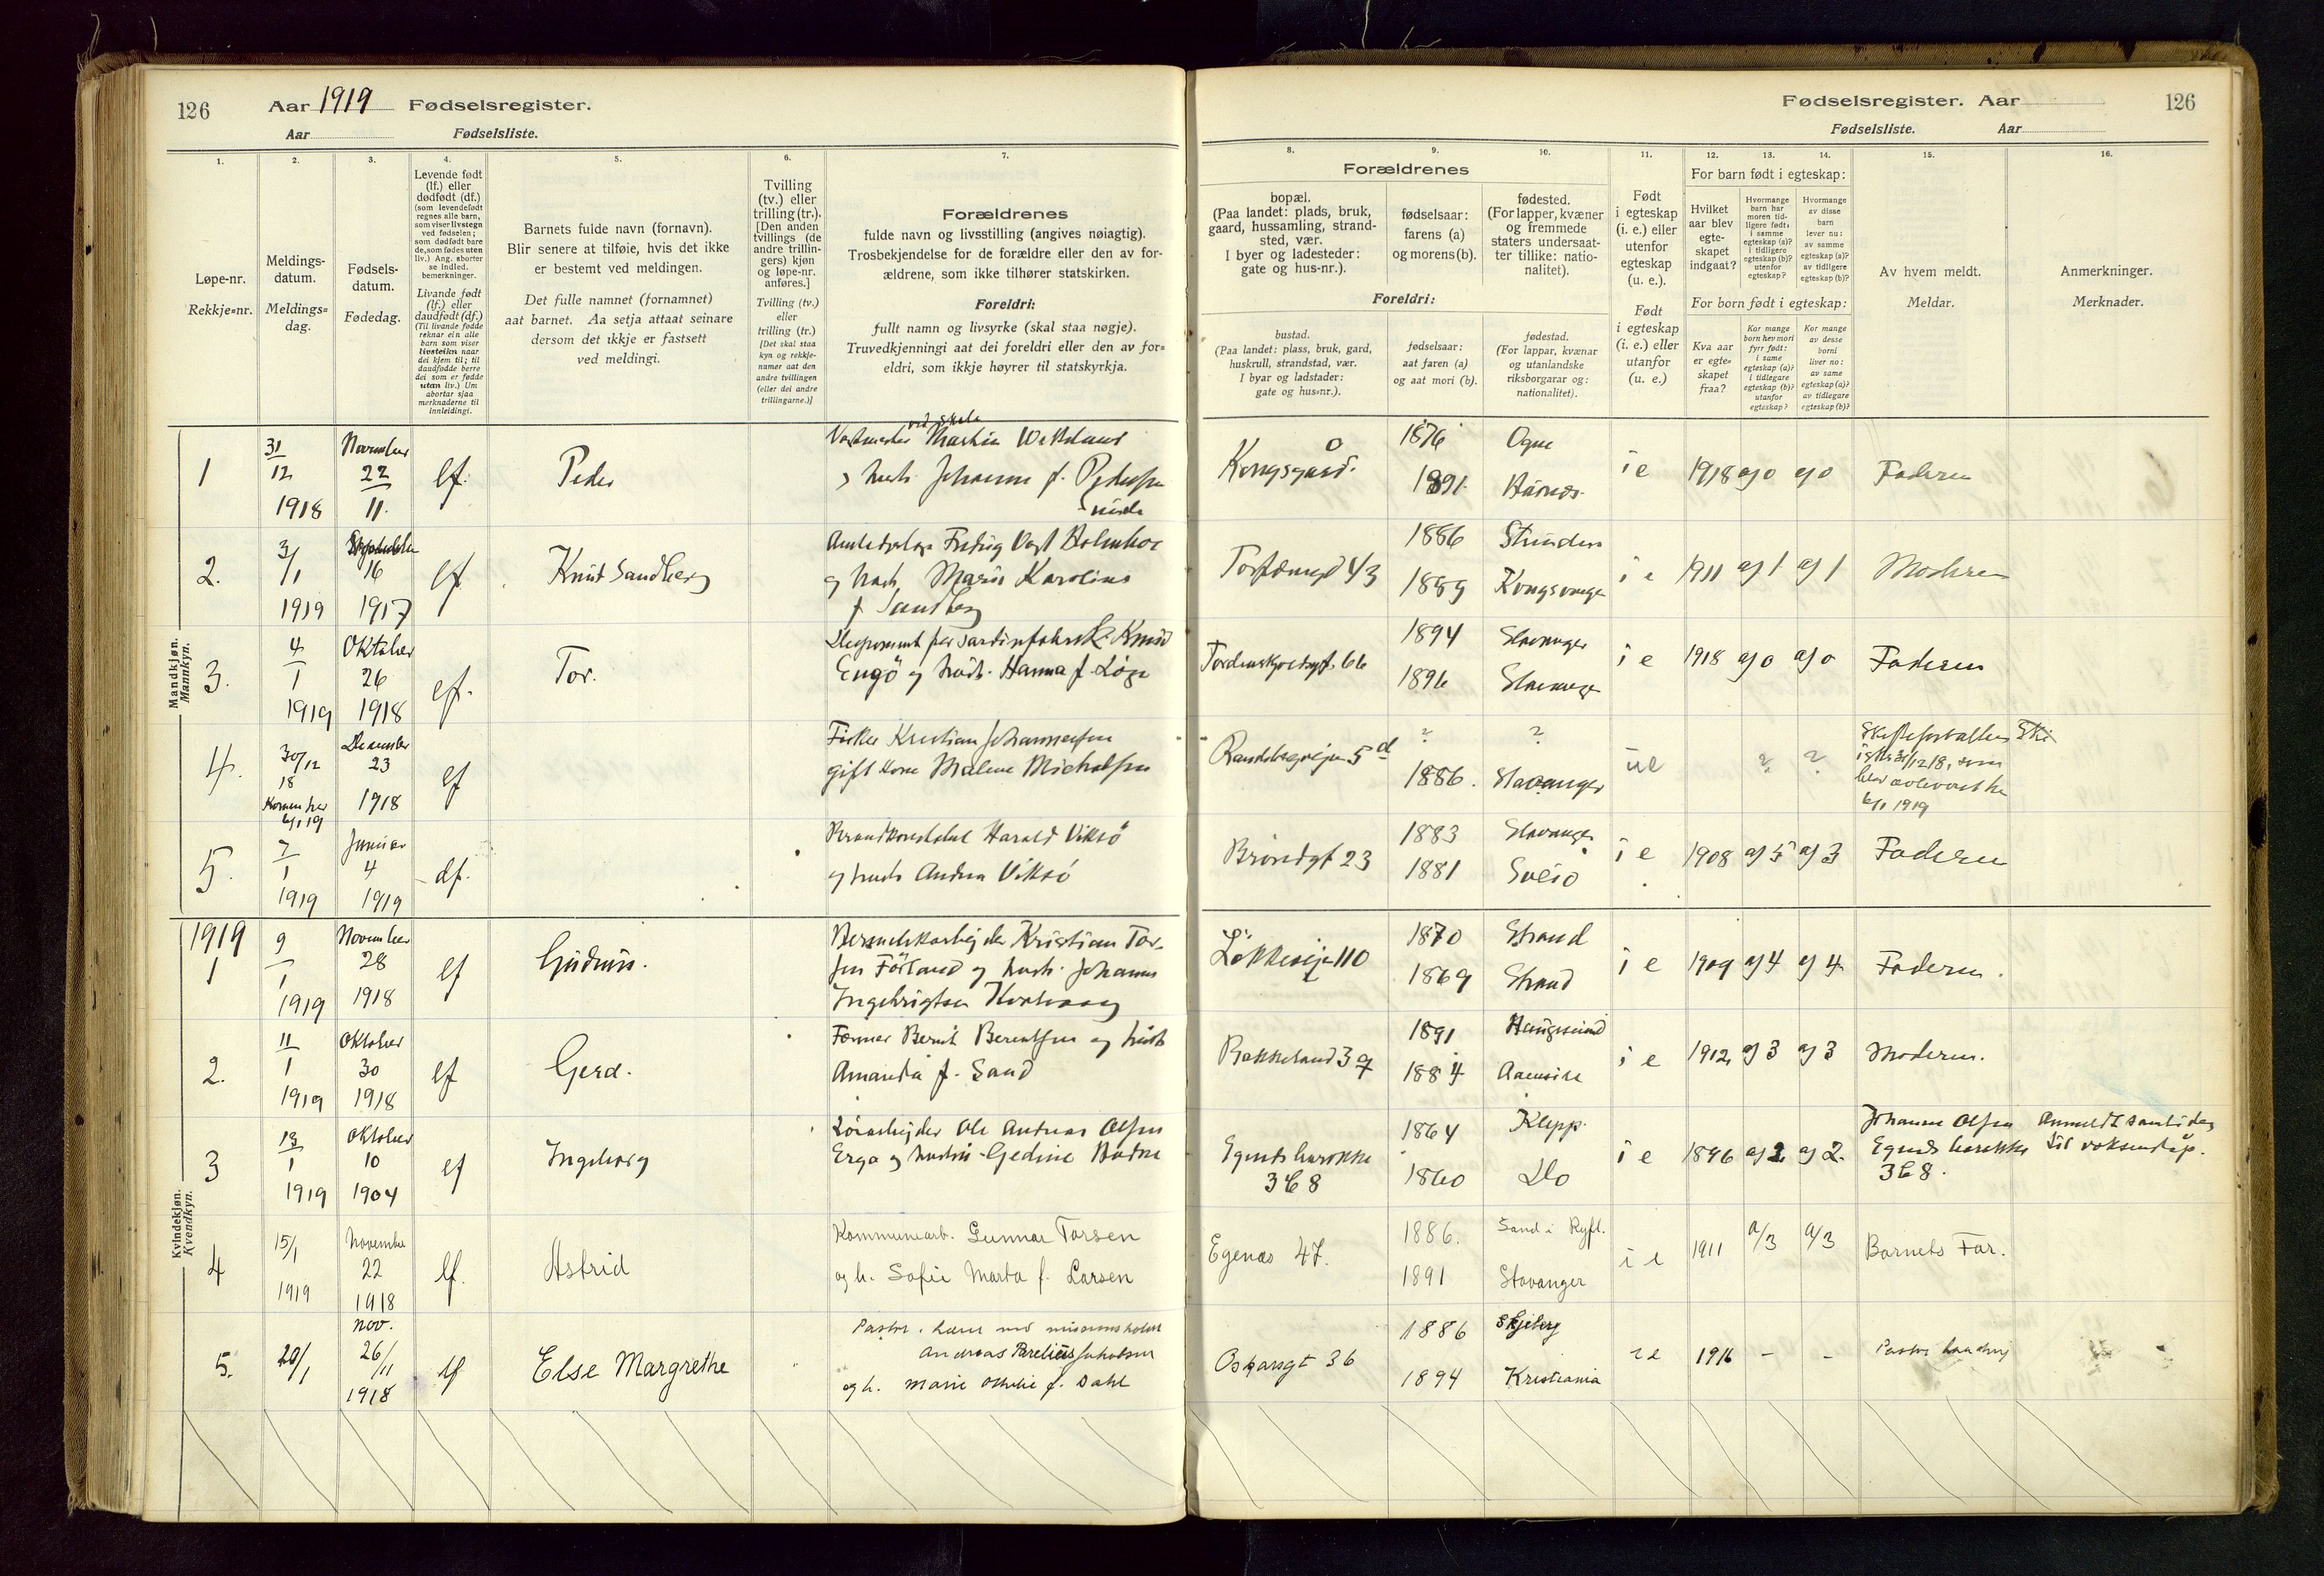 126 Aar 1919 Fødselsregister.
Aar Fødselsliste.
Fødselsregister. Aar 126
Fødselsliste. Aar
1.
Løpe-nr.
Rekkje-nr.
2.
Meldings-
datum.
Meldings-
dag.
3.
Fødsels-
datum.
Fødedag.
4.
Levende født
(lf.) eller
dødfødt (df.)
(som levendefødt
regnes alle barn,
som viser livstegn
ved fødselen;
som dødfødt bare
de, som fødes uten
liv.) Ang. aborter
se indled.
bemerkninger.
Livande født
(lf.) eller
daudfødt (df.)
(Til livande fødde
reknar ein alle
barn som viser
livsteikn naar
dei kjem til; til
daudfødde berre
dei som er fødde
utan liv.) Um
abortar sjaa
merknaderne til
innleidingi.
5.
Barnets fulde navn (fornavn).
Blir senere at tilføie, hvis det ikke
er bestemt ved meldingen.
Det fulle namnet (fornamnet)
aat barnet. Aa setja attaat seinare
dersom det ikkje er fastsett
ved meldingi.
6.
Tvilling
(tv.) eller
trilling (tr.).
[Den anden
tvillings (de
andre trillin-
gers) kjøn
og løpe-nr.
anføres.]
Tvilling (tv.)
eller
trilling (tr.)
[Det skal staa
kyn og rekkje-
numer aat den
andre tvillingen
(eller dei andre
trillingarne.)]
7.
Forældrenes
fulde navn og livsstilling (angives nøiagtig).
Trosbekjendelse for de forældre eller den av for-
ældrene, som ikke tilhører statskirken.
Foreldri:
fullt namn og livsyrke (skal staa nøgje).
Truvedkjenningi aat dei foreldri eller den av for-
eldri, som ikkje høyrer til statskyrkja.
Forældrenes
8.
bopæl.
(Paa landet: plads, bruk,
gaard, hussamling, strand-
sted, vær.
I byer og ladesteder:
gate og hus-nr.).
9.
fødselsaar:
farens (a)
og morens (b).
10.
fødested.
(For lapper, kvæner
og fremmede
staters undersaat-
ter tillike: natio-
nalitet).
Foreldri:
bustad.
(Paa landet: plass, bruk, gard,
huskrull, strandstad, vær.
I byar og ladstader:
gate og hus-nr.).
fødselsaar:
aat faren (a)
og aat mori (b).
fødestad.
(For lappar, kvænar
og utanlandske
riksborgarar og:
nationalitet).
11.
Født
i egteskap
(i. e.) eller
utenfor
egteskap
(u. e.).
Født
i egteskap
(i. e.) eller
utanfor
(u. e.)
12. 13. 14.
For barn født i egteskap:
Hvilket
aar blev
egte-
skapet
indgaat?
Hvormange
barn har
moren tid-
ligere født:
i samme
egteskap (a)?
i tidligere
egteskap (b)?
utenfor
egteskap?
Hvormange
av disse
barn
lever nu:
av samme
egteskap (a)?
av tidligere
egteskap (b)?
For born født i egteskap:
Kva aar
er egte-
skapet
fraa?
Kor mange
born hev mori
fyrr født:
i same
egteskap (a)?
i tidlegare
egteskap (b)?
utanfor
egteskap?
Kor mange
av desse
borni
liver no:
av same
egteskap (a)?
av tidlegare
egteskap (b)?
15.
Av hvem meldt.
Meldar.
16.
Anmerkninger.
Merknader.
Mandkjøn.
Mannkyn.
1 31/12 1918 November 22/11. lf. Peder
Martin
Johanne f.
Kongsgård. 1876 Ogne
1891.
i e 1918 a) 0 a) 0 Faderen
2. 3/1 1919 September 16 1917 lf. Knut Sandberg
og hust. Marie Karoline
f. Sandberg
1886
1889
i e 1911 a) 1 a) 1 Moderen
3. 4/1 1919 Oktober 26 1918 lf. Tor.
Engö og hust. Hanna f.
66 1894 Stavanger
1896 Stavanger
i e 1918 a) 0 a) 0 Faderen
4. 30/12 18 6/1 19 Desember 23 1918 lf
Fisker Kristian Johannessen
gift kone Malene Michalsen
5 d ? ?
1886. Stavanger
ue ? ?
6/1 1919
5. 7/1 1919 Januar 4 1919 df.
Brandkonstabel Harald Viksö
og hust. Andrea Viksö
Bröndgt 23 1883 Stavanger
1881 Sveio
i e 1908 a) 5 a) 3 Faderen
Kvindekjøn.
Kvendkyn.
1919
1 9/1 1919 November 28 1918 lf Gudrun.
Kristian Tor-
sen Förland og hust. Johanne
Ingebrigtsen
Lökkevejen 110 1870 Strand
1869 Strand
i e 1909 a) 4 a) 4 Faderen.
2. 11/1 1919 Oktober 30 1918 lf Gerd.
Former Bernt Berentsen og hust
Amanda f. Sand
Bakkeland 39 1891 Haugesund
1884
i e 1912 a) 3 a) 3 Moderen.
3 13/1 1919 Oktober 10 1904 lf Ingeborg
Ole Andreas Olsen
Erga og hustru Gedine
368 1864 Klepp.
1860 Do
i e 1896 a) 2 a) 2. Johanne Olsen
368.
Anmeldt samtidig
til voksendåp.
4 15/1 1919 November 22 1918 lf. Astrid
Kommunearb. Gunnar Torsen
og h. Sofie Marta f. Larsen
Egenas 47. 1886. Sand i Ryf.
1891 Stavanger
i e 1911 a/3 a/3 Barnets Far.
5. 20/1 nov. 26/11 1918 lf Else Margrethe
Pastor, lærer ved missionsskolen
Andreas Parelius Jakobsen
og h. Marie Othilie f. Dahl
Oskarsgt 36 1886 Skjeberg
1894 Kristiania
i e 1916 - - Pastor